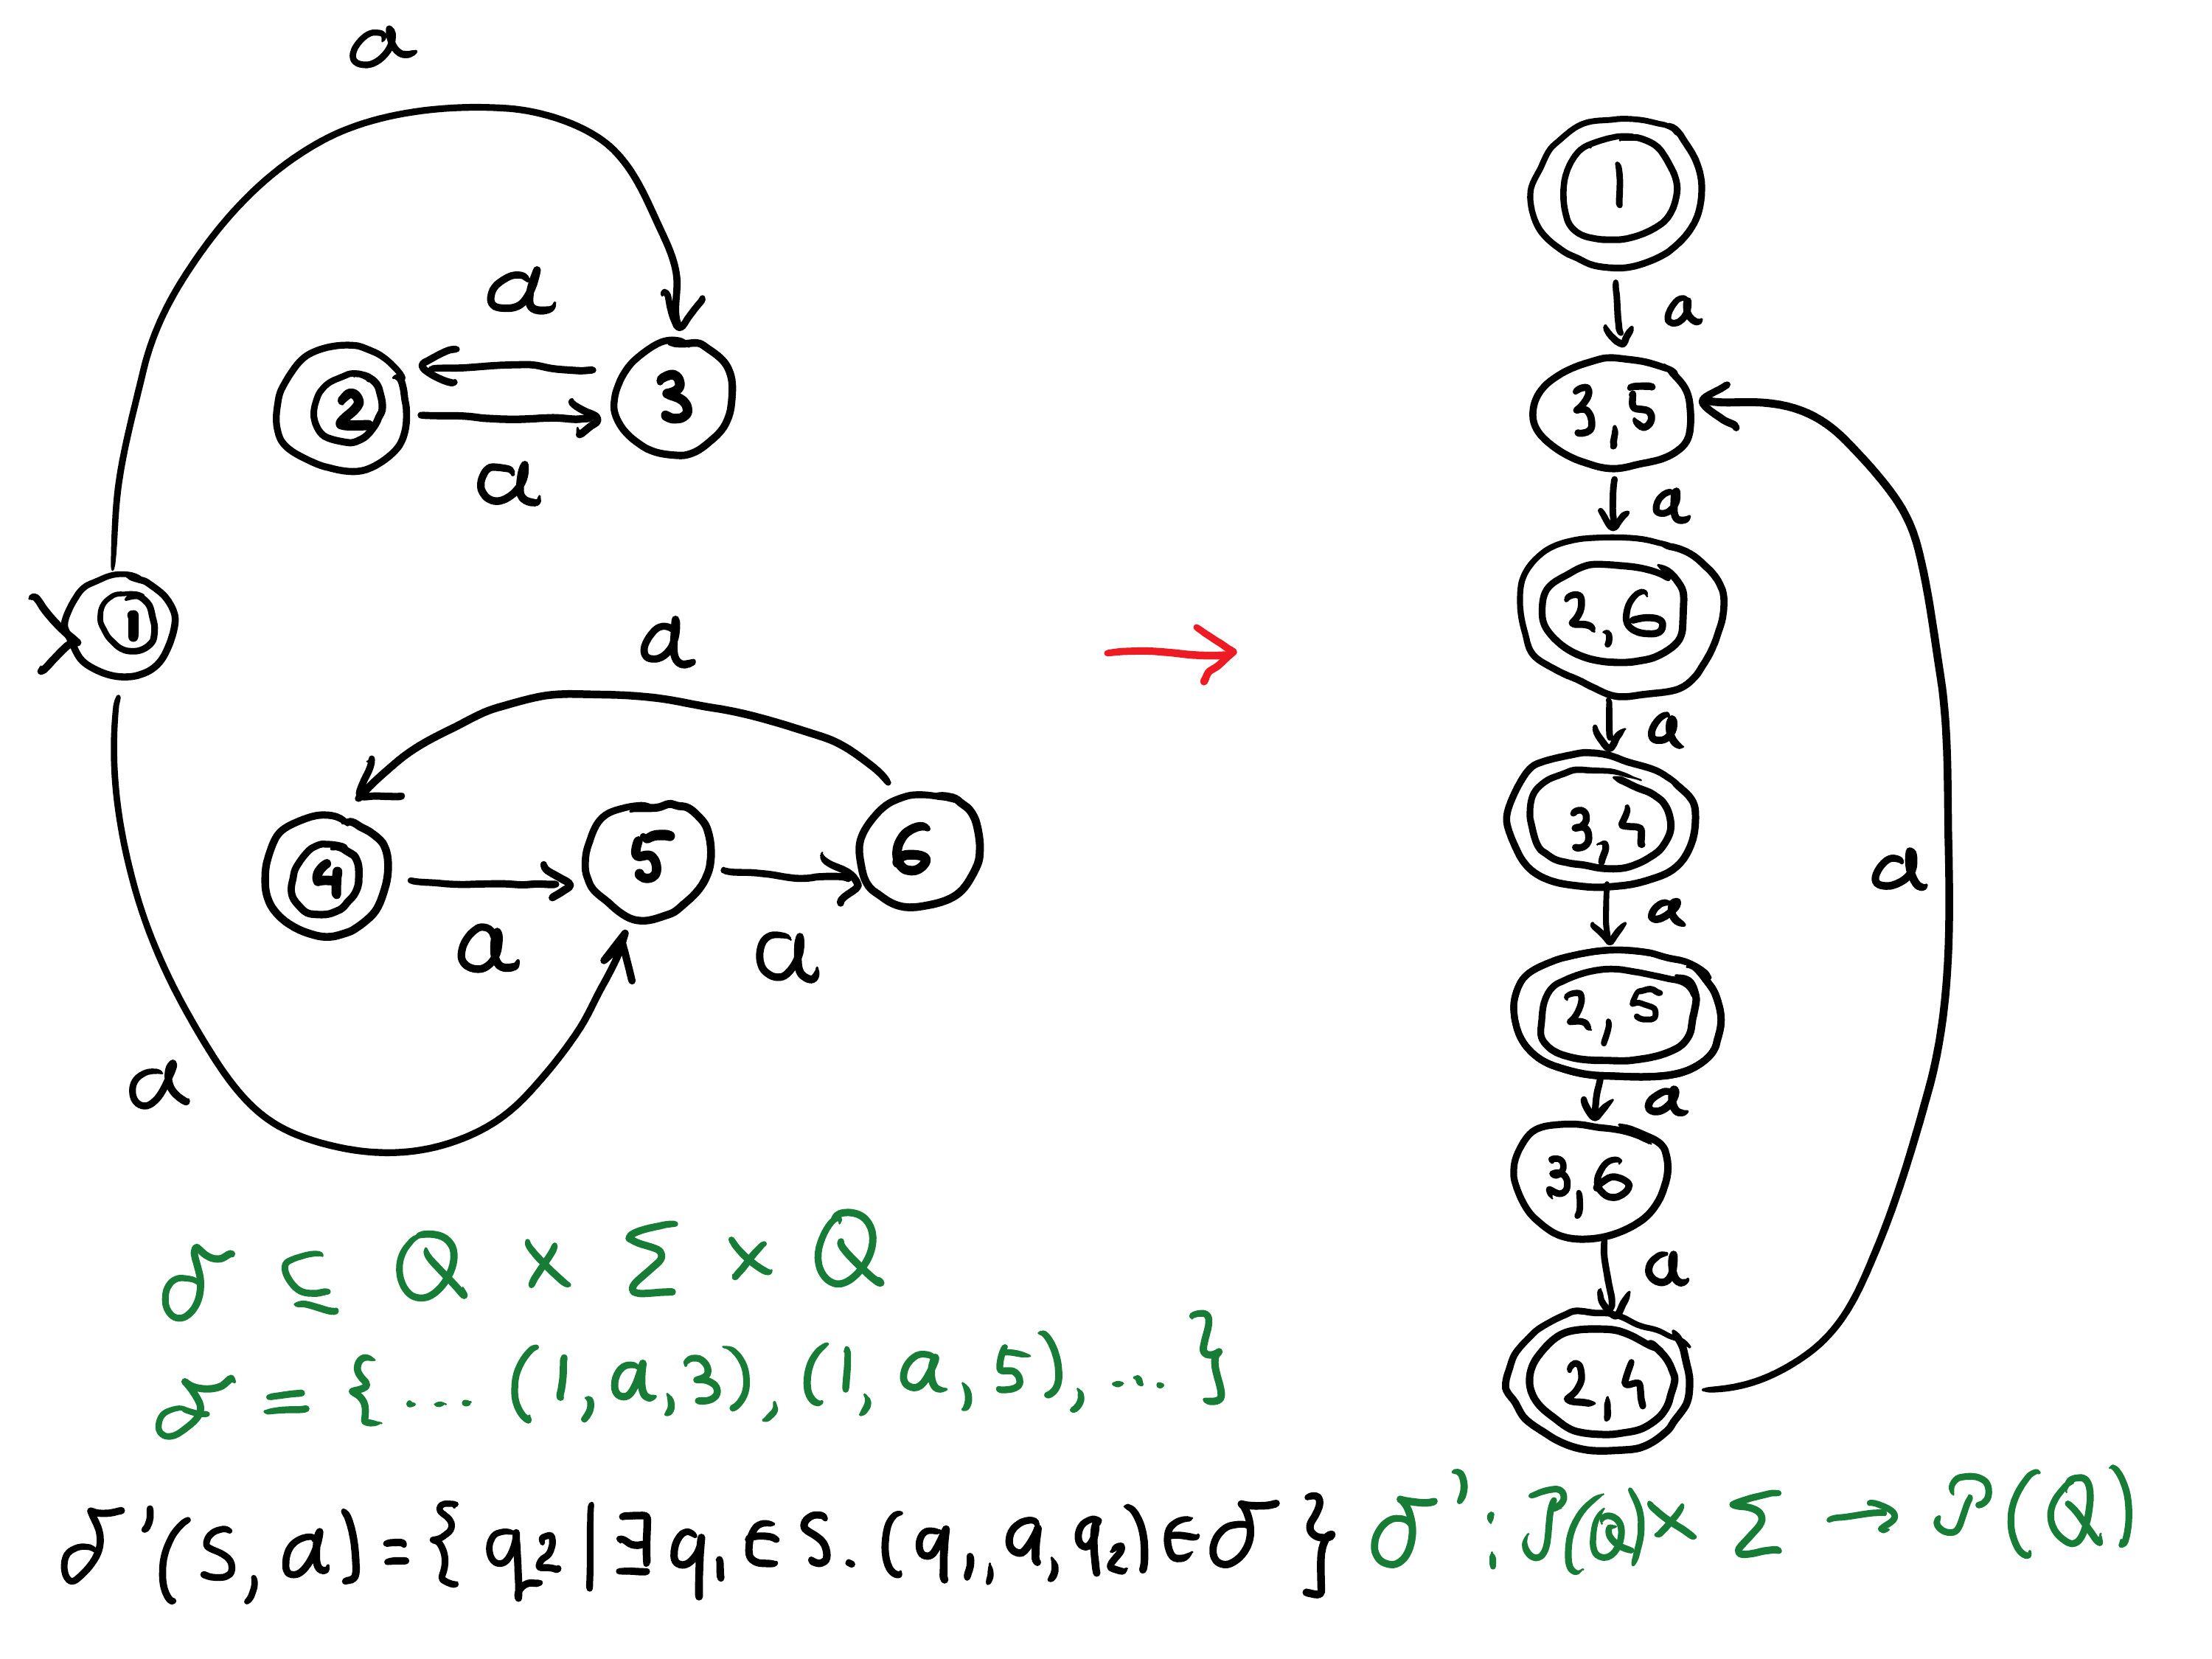 a
a
2
3
a
1
a
4
5
6
a
a
a
1
a
3,5
a
2,6
a
3,4
a
2,5
a
3,6
a
2,4
a
δ ⊆ Q × Σ × Q
δ = {... (1,a,3),(1,a,5),... }
δ'(S,a)={q₂|∃q₁∈S.(q₁,a,q₂)∈δ} δ':P(Q)×Σ → P(Q)